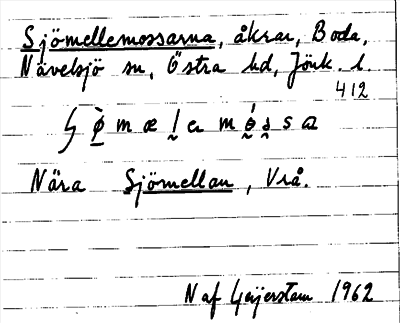 Sjömellemossarna, åkrar, Boda,
Nävelsjö sn, Östra hd, Jönk. l.
412
Nära Sjömellan, Vrå.
N af Geijerstam 1962